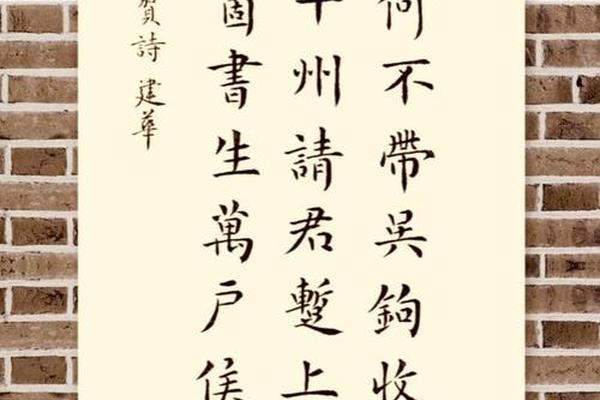 何不帶吳鉤收
十州請君暫上
書生萬戶侯
賀詩 建華